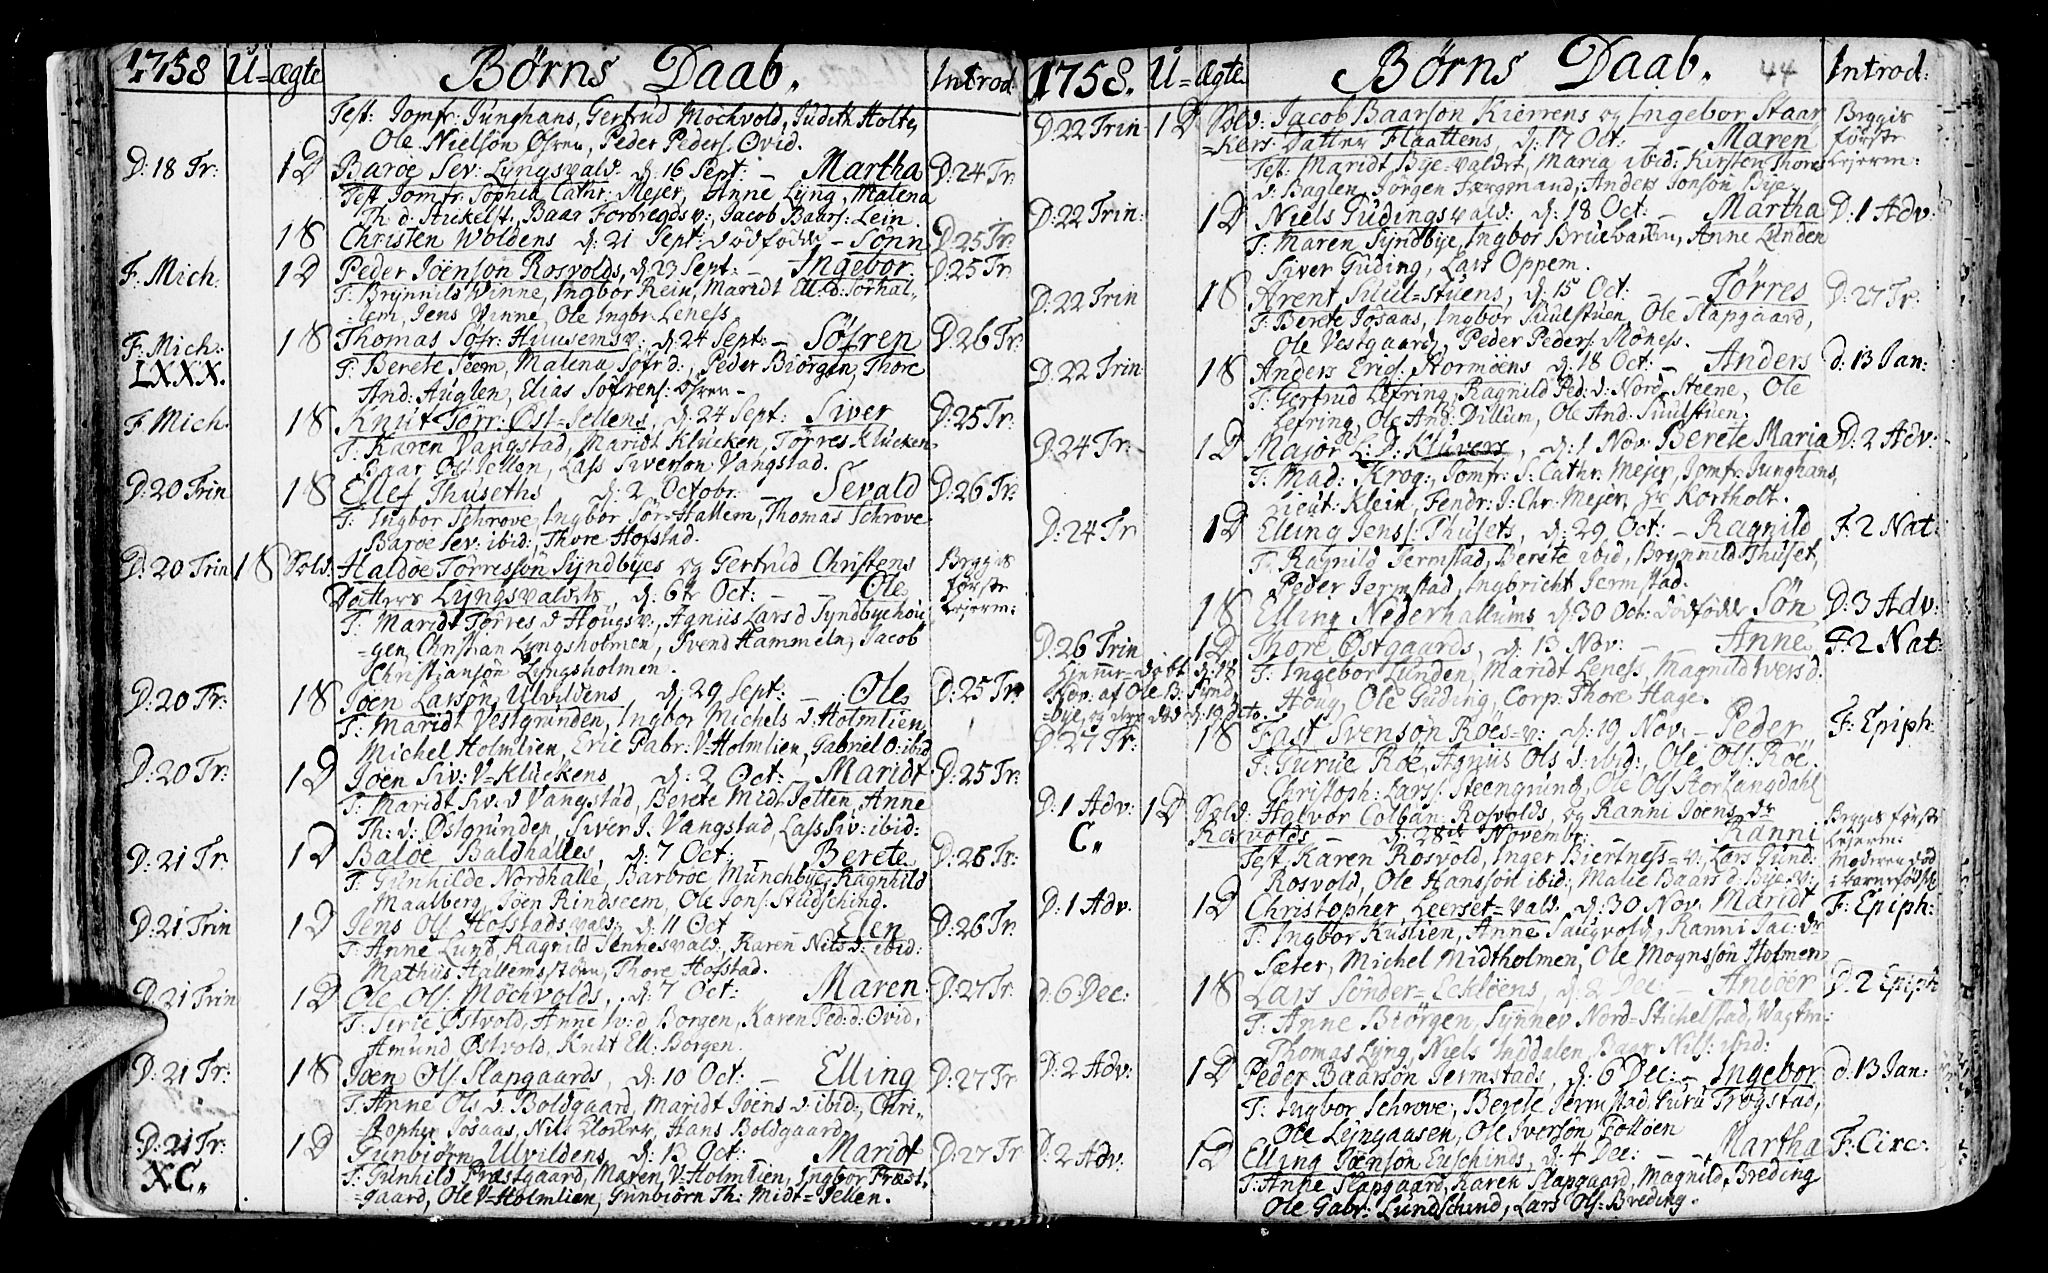 1758 U= ægte Børns Daab. Introd:
Test: Jomfr: Junghans, Gertrud Mochvold, Judith Holte,
Ole Nielsön Øfren, Peder Peders: Ovid.
D: 18 Tr: 1 D Baroe Sev: Lyngsvald: d: 16 Sept: – Martha D: 24 Tr:
Test Jomfr: Sophia Cathr: Mejer, Anne Lyng, Malena
Th: d: Auskelst, Baar Forbregds v:, Jacob Baars: Lein.
1 S Christen Woldens d: 21 Sept: dödfödde – Sönn D: 25 Tr:
F. Mich: 1 D Peder Joensön Rosvolds, d: 23 Sept: – Ingebor D: 25 Tr:
T: Brynnils Winne, Ingbor Rein, Maridt Ell: d: Sörhal=
=lem, Jens Winne, Ole Ingbr: Leness.
F. Mich: 1 S Thomas Söfr: Huusems v: d: 24 Sept: – Söfren D: 26 Tr:
LXXX. T: Berete Seem, Malena Söfr d:, Peder Biörgen, Thore
And: Auglen, Elias Söfrens: Øfren –
F. Mich: 1 S Knut Törr: Øst=Jellens, d: 24 Sept: Siver D: 25 Tr:
T: Karen Vangstad, Maridt Klucken, Törres Klucken
Baar Ols: Jellen, Lass Siversön Vangstad.
D: 20 Trin 1 S Ellef Thuseths d: 2 Octobr: – Sevald D: 26 Tr:
T: Ingbor Schrove, Ingbor Sör=Hallem, Thomas Schrove
Baroe Sev: ibid:, Thore Hofstad.
D: 20 Trin 1 S Sold: Haldoe Törressön Syndbyes og Gertrud Christens Begges
Datters Lyngsvaldets, d: 6te Oct: – Ole første
T: Maridt Törres d Hougs v:, Agnius Lars d Tyndbyehou= Lejerm:
=gen, Christian Lyngsholmen, Svend Hammeln, Jacob
Christiansön Lyngsholmen.
D: 20 Tr: 1 S Joen Larsön Ulvildens, d: 29 Sept: – Ole D: 25 Tr
T: Maridt Vestgrunden, Ingbor Michels d Holmlien
Michel Holmlien, Eric Fabr: V=Holmlien, Gabriel O: ibid
D: 20 Tr: 1 D Joen Siv: V=Kluckens, d: 2 Oct: – Maridt D: 25 Tr:
T: Maridt Siv: d Vangstad, Berete Midt Jetten, Anne
Th: d: Østgrunden, Siver J: Vangstad, Lass Siv: ibid:
D: 21 Tr: 1 D Baloe Baldhalles, d: 7 Oct: – Berete D: 26 Tr:
T: Gunhilde Nordhalle, Barbroe Munchbye, Ragnhild
Maalberg, Joen Rindseem, Ole Jons: Studschind.
D: 21 Trin 1 D Jens Ols Hofstadsvald: d: 11 Oct Elen D: 26 Tr:
T: Anne Lund, Ragnild Tennesvald, Karen Nils d: ibid:
Mathus Hallemsstöen, Thore Hofstad.
D: 21 Trin 1 D Ole Ols: Mochvolds, d: 7 Oct: Maren D: 27 Tr:
T: Serie Østvold, Anne Iv: d Borgen, Karen Ped: d: Ovid,
Amund Østvold, Knut Ell: Borgen.
D: 21 Tr: 1 S Joen Ols Slapgaards, d: 10 Oct: – Elling D: 27 Tr
T: Anne Ols d: Boldgaard, Maridt Joens d: ibid:, Chri=
=stopher Josaas, Nils Klocker, Hans Boldgaard.
D: 21 Tr: 1 D Gunbiörn Ulvildens, d: 13 Oct: Maridt D: 27 Tr
XC. T: Gunhild Præstgaard, Maren V=Holmlien, Ingbor Præst=
=gaard, Ole V=Holmlien, Gunbiörn Th: Midt=Jellen.
1758. U= ægte Børns Daab. 44 Introd:
D: 22 Trin 1 D Solv: Jacob Baarsön Kierrens og Ingebor Staar Begges
=kers=Datter Flaattens, d: 17 Oct: Maren første
Test: Maridt Bye=valdet, Maria ibid: Kirsten Thores Lejerm:
d: Baglen, Jörgen Færgmand, Anders Jonsön Bye.
D: 22 Trin: 1 D Niels Gudingsvald: d: 18 Oct: – Martha D: 1 Adv:
T: Maren Syndbye, Ingbor Bruevarten, Anne Lunden
Siver Guding, Lars Oppem.
D: 22 Trin 1 S Arent Suul=stuens, d: 15 Oct: – Törres D: 27 Tr:
T: Berete Josaas, Ingbor Suulstuen, Ole Slapgaard,
Ole Vestgaard, Peder Peders: Slöness.
D: 22 Trin: 1 S Anders Erics: Stormöens d: 18 Oct: Anders d: 13 Jan:
T: Gertrud Lefring, Ragnild Ped: d: Nord=Steene, Ole
Lefring, Ole And: Dillum, Ole And: Suulstuen.
D: 24 Tr: 1 D Major L: D: Kluvers, d: 1 Nov: Berete Maria D: 2 Adv:
T: Mad: Krog:, Jomfr: S: Cathr: Mejer, Jomfr: Junghans,
Lieut: Klein, Fendr: J: Chr: Mejer, Hr Kortholt.
D: 24 Tr 1 D Elling Jens: Thusets, d: 29 Oct: – Ragnild F: 2 Nat:
T: Ragnild Jermstad, Berete ibid, Brynnild Thuset,
Peder Jermstad, Ingbricht Jermstad.
1 S Elling Nederhallums d: 30 Oct: Dödfödde Sön D: 3 Adv:
D: 26 Trin 1 D Thore Østgaards, d: 13 Nov: – Anne F: 2 Nat:
Hjemme=döbt d: 14 T: Ingebor Lunden, Maridt Leness, Magnild Ivers d:
Nov: af Ole B: Synd= Houg, Ole Guding, Corp: Thore Hage.
=bye, og der död d: 19 dito.
D: 27 Tr: 1 S Fast Svensön Roes=v: d: 19 Nov: – Peder F: Epiph:
T: Gurue Röe, Agnius Ols d: ibid:, Ole Ols: Röe.
Christoph: Larss: Steengrund, Ole Ols Storlangdahl
D: 1 Adv: 1 D Sold: Halvor Colban: Rosvolds, og Ranni Joens dr Begges første
C. Rosvolds – d: 28de Novembr: – Ranni Lejerm:
Test, Karen Rosvold, Inger Biertness=v:, Lars Gund: Moderen död
Rosvold, Ole Hanssön ibid:, Malie Baars d: Bye v: i Barnefödsel
D: 1 Adv: 1 D Christopher Leerset=vald. d: 30 Nov. Maridt F: Epiph:
T: Ingbor Kuslien, Anne Saugvold, Ranni Jac: dr
Sæter, Michel Midtholmen, Ole Mognssön Holmen
d: 6 Dec: 1 S Lars Sönder=Eckloens, d: 2 Dec: – Andoer D: 2 Epiph
T: Anne Biörgen, Synnev Nord=Stichelstad, Wagtm:
Thomas Lyng, Niels Inddalen, Baar Nils: ibid:
D: 2 Adv: 1 D Peder Baarsön Jermstads, d: 6 Dec: – Ingebor d: 13 Jan:
T: Ingbor Schrove, Berete Jermstad, Guru Trogstad,
Ole Lyngaasen, Ole Iversön Folloen
D: 2 Adv: 1 D Elling Joensön Euschinds, d: 4 Dec: – Martha F: Circ:
T: Anne Slapgaard, Karen Slapgaard, Magnild Breding
Ole Gabr: Lundschind, Lars Ols: Breding.